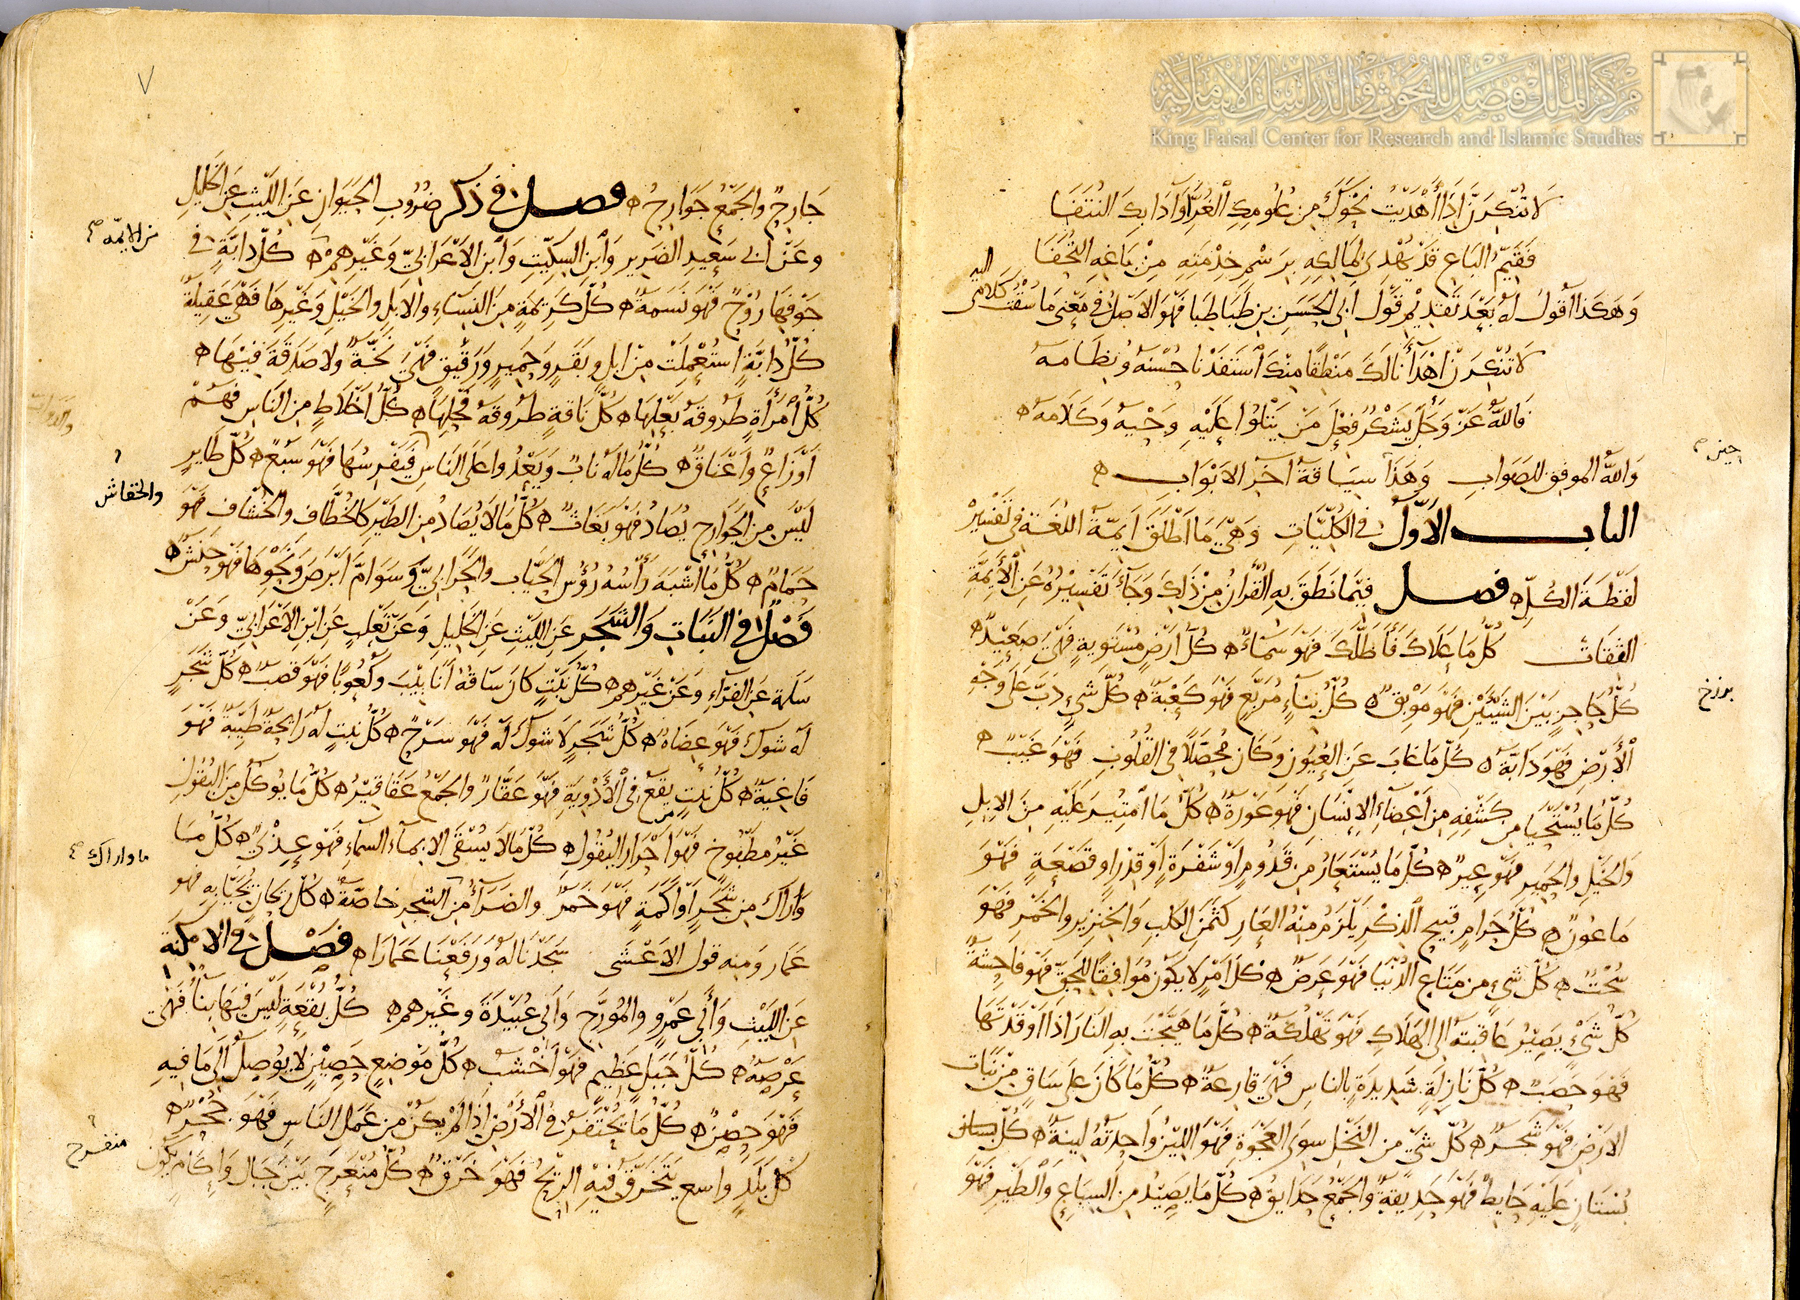 مركز الملك فيصل للبحوث والدراسات الإسلامية
King Faisal Center for Research and Islamic Studies
لا تنكرن إذا أهديت نحوك من علومك الغر أو آدابك النتفا
فقيم الباغ قد يهدي لمالكه برسم خدمته من باغه التحفا
وهكذا أقول له بعد تقديم قول أبي الحسن بن طباطبا فهو الأصل في معنى ما سقت كلامي إليه
لا تنكرن اهدآنا لك منطقا منك استفدنا حسنه ونظامه
فالله عز وجل يشكر فعل من يتلوا عليه وحيه وكلامه
والله الموفق للصواب وهذا سياقة آخر الابواب
الباب الأول في الكليات وهي ما أطلق أيمة اللغة في تفسير
لفظة الكل فصل فيما نطق به القرآن من ذلك وجآء تفسيره عن الأيمة
الثقات كل ما علاك فأظلك فهو سمآء كل أرض مستوية فهي صعيد
كل حاجز بين الشيئين فهو موبق كل بنآء مربع فهو كعبة كل شيء دب على وجه
الأرض فهو دابة كل ما غاب عن العيون وكان محصلا في القلوب فهو غيب
كل ما يستحيا من كشفه من أعضآء الإنسان فهو عورة كل ما امتير عليه من الابل
والخيل والحمير فهو عير كل ما يستعار من قدوم أو شفرة أو قدر أو قصعة فهو
ماعون كل حرام قبيح الذكر يلزم منه العار كثمن الكلب والخنزير والخمر فهو
سحت كل شيء من متاع الدنيا فهو عرض كل امر لا يكون موافقا للحق فهو فاحشة
كل شيء يصير عاقبته الى الهلاك فهو تهلكة كل ما هيجت به النار اذا أوقدتها
فهو حصب كل نازلة شديدة بالناس فهي قارعة كل ما كان على ساق من نبات
الارض فهو شجر كل شيء من النخل سوى العجوة فهو اللين واحدته لينة كل بستان
بستان عليه حايط فهو حديقة والجمع حدايق كل ما يصيد من السباع والطير فهو
برزخ
٧
جارح والجمع جوارح فصل في ذكر ضروب الحيوان عن الليث عن الخليل
وعن ابي سعيد الضرير وابن السكيت وابن الأعرابي وغيرهم كل دابة في
من الايمة صح
جوفها روح فهو نسمة كل كريمة من النسآء والابل والخيل وغيرها فهي عقيلة
كل دابة استعملت من ابل وبقر وحمير ورقيق فهي نخة ولا صدقة فيها
كل أمرأة طروقة بعلها كل ناقة طروقة فحلها كل اخلاط من الناس فهم
أوزاع وأعناق كل ما له ناب ويعدوا على الناس فيفرسها فهو سبع كل طاير
والخفاش
ليس من الجوارح يصاد فهو بغاث كل ما لا يصاد من الطير كالخطاف والخشاف فهو
حمام كل ما أشبه رأسه رؤس الحيات والحرابي وسوام أبرص ونحوها فهو حنش
فصل في النبات والشجر عن الليث عن الخليل وعن ثعلب عن ابن الأعرابي وعن
سلمة عن الفرآء وعن غيرهم كل نبت كان ساقه أنابيب وكعوبا فهو قصب كل شجر
له شوك فهو عضاه كل شجر لا شوك له فهو سرح كل نبت له رايحة طيبة فهو
فاغية كل نبت يقع في الأدوية فهو عقار والجمع عقاقير كل ما يوكل من البقول
غير مطبوخ فهو أحرار البقول كل ما لا يسقى الا بمآء السمآء فهو عذي كل ما
ما واراك صح
وأراك من شجر أو أكمة فهو خمر والضرآء من الشجر خاصة كل ريحان يحيا به فهو
عمار ومنه قول الاعشى سجدنا له ورفعنا عمارا فصل في الامكنة
عن الليث وأبي عمرو والمورج وأبي عبيدة وغيرهم كل بقعة ليس فيها بنآء فهي
عرصة كل جبل عظيم فهو أخشب كل موضع حصين لا يوصل الى ما فيه
فهو حصن كل ما يحتفر في الأرض اذا لم يكن من عمل الناس فهو جحر
منفرج
كل بلد واسع يتخرق فيه الريح فهو خرق كل منعرج بين جبال وإكام يكون